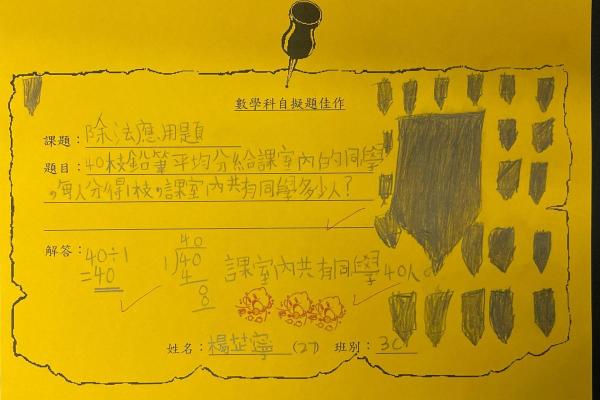 數學科自擬題佳作
課題：除法應用題
題目：40枝鉛筆平均分給課室內的同學
，每人分得1枝，課室內共有同學多少人？
解答：40÷1
=40
40
1)40
4
0
0
課室內共有同學40人。
姓名：楊芷寧 (27) 班別：3C